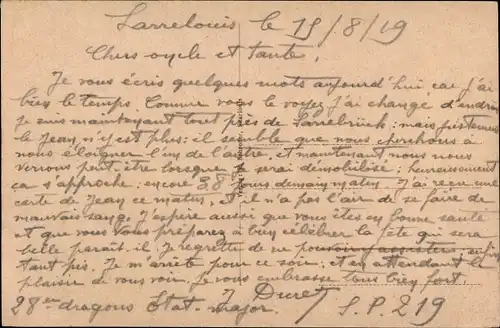 Sarrelouis le 15/8/19
Chers oncle et tante,
Je vous écris quelques mots aujourd'hui car j'ai
bien le temps. Comme vous le voyez j'ai changé d'endroit
je suis maintenant tout près de Sarrebrück; mais justement
le Jean n'y est plus; il semble que nous cherchons à
nous éloigner l'un de l'autre, et maintenant nous nous
verrons peut-être lorsque je serai démobilisé; heureusement
ça s'approche; encore 28 jours demain matin. J'ai reçu une
carte de Jean ce matin, et il n'a pas l'air de se faire de
mauvais sang. J'espère aussi que vous êtes en bonne santé
et que vous vous préparez à bien célébrer la fête qui sera
belle paraît-il. Je regrette de ne pouvoir y assister, enfin
tant pis. Je m'arrête pour ce soir, et en attendant le
plaisir de vous voir. Je vous embrasse tous bien fort.
28em dragons Etat-major. J Duret S.P. 219